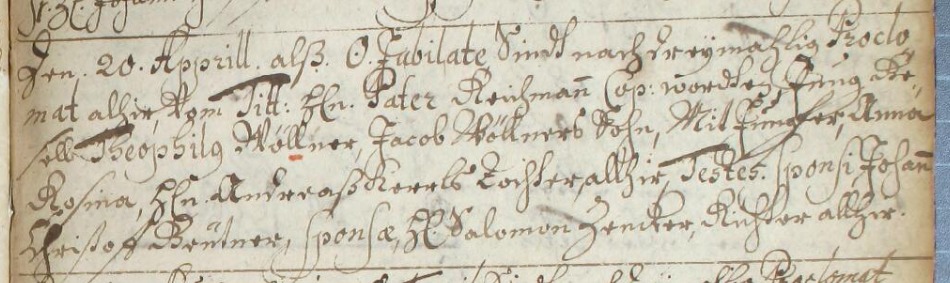 Den. 20. Apprill. alß. O. Jubilate Sindt nach dreymahlig Procla
mat alhir, Vom Titt: Hln. Pater Reichmañ Cop: wordten, Jung Ge,
sell Theophilg Wöllner, Jacob Wöllners Sohn, Mit Jungfer, Anna
Rosina, Hln. Andreaß Kerrls Tochter, allhir, Testes. sponsi Johañ
Christoff Beütner, sponsæ, H. Salomon Zencker, Richter allhir.
Proclomat